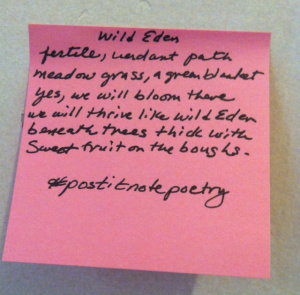 Wild Eden
fertile, verdant path
meadow grass, a green blanket
yes, we will bloom there
we will thrive like wild Eden
beneath trees thick with
Sweet fruit on the boughs.
#postitnotepoetry